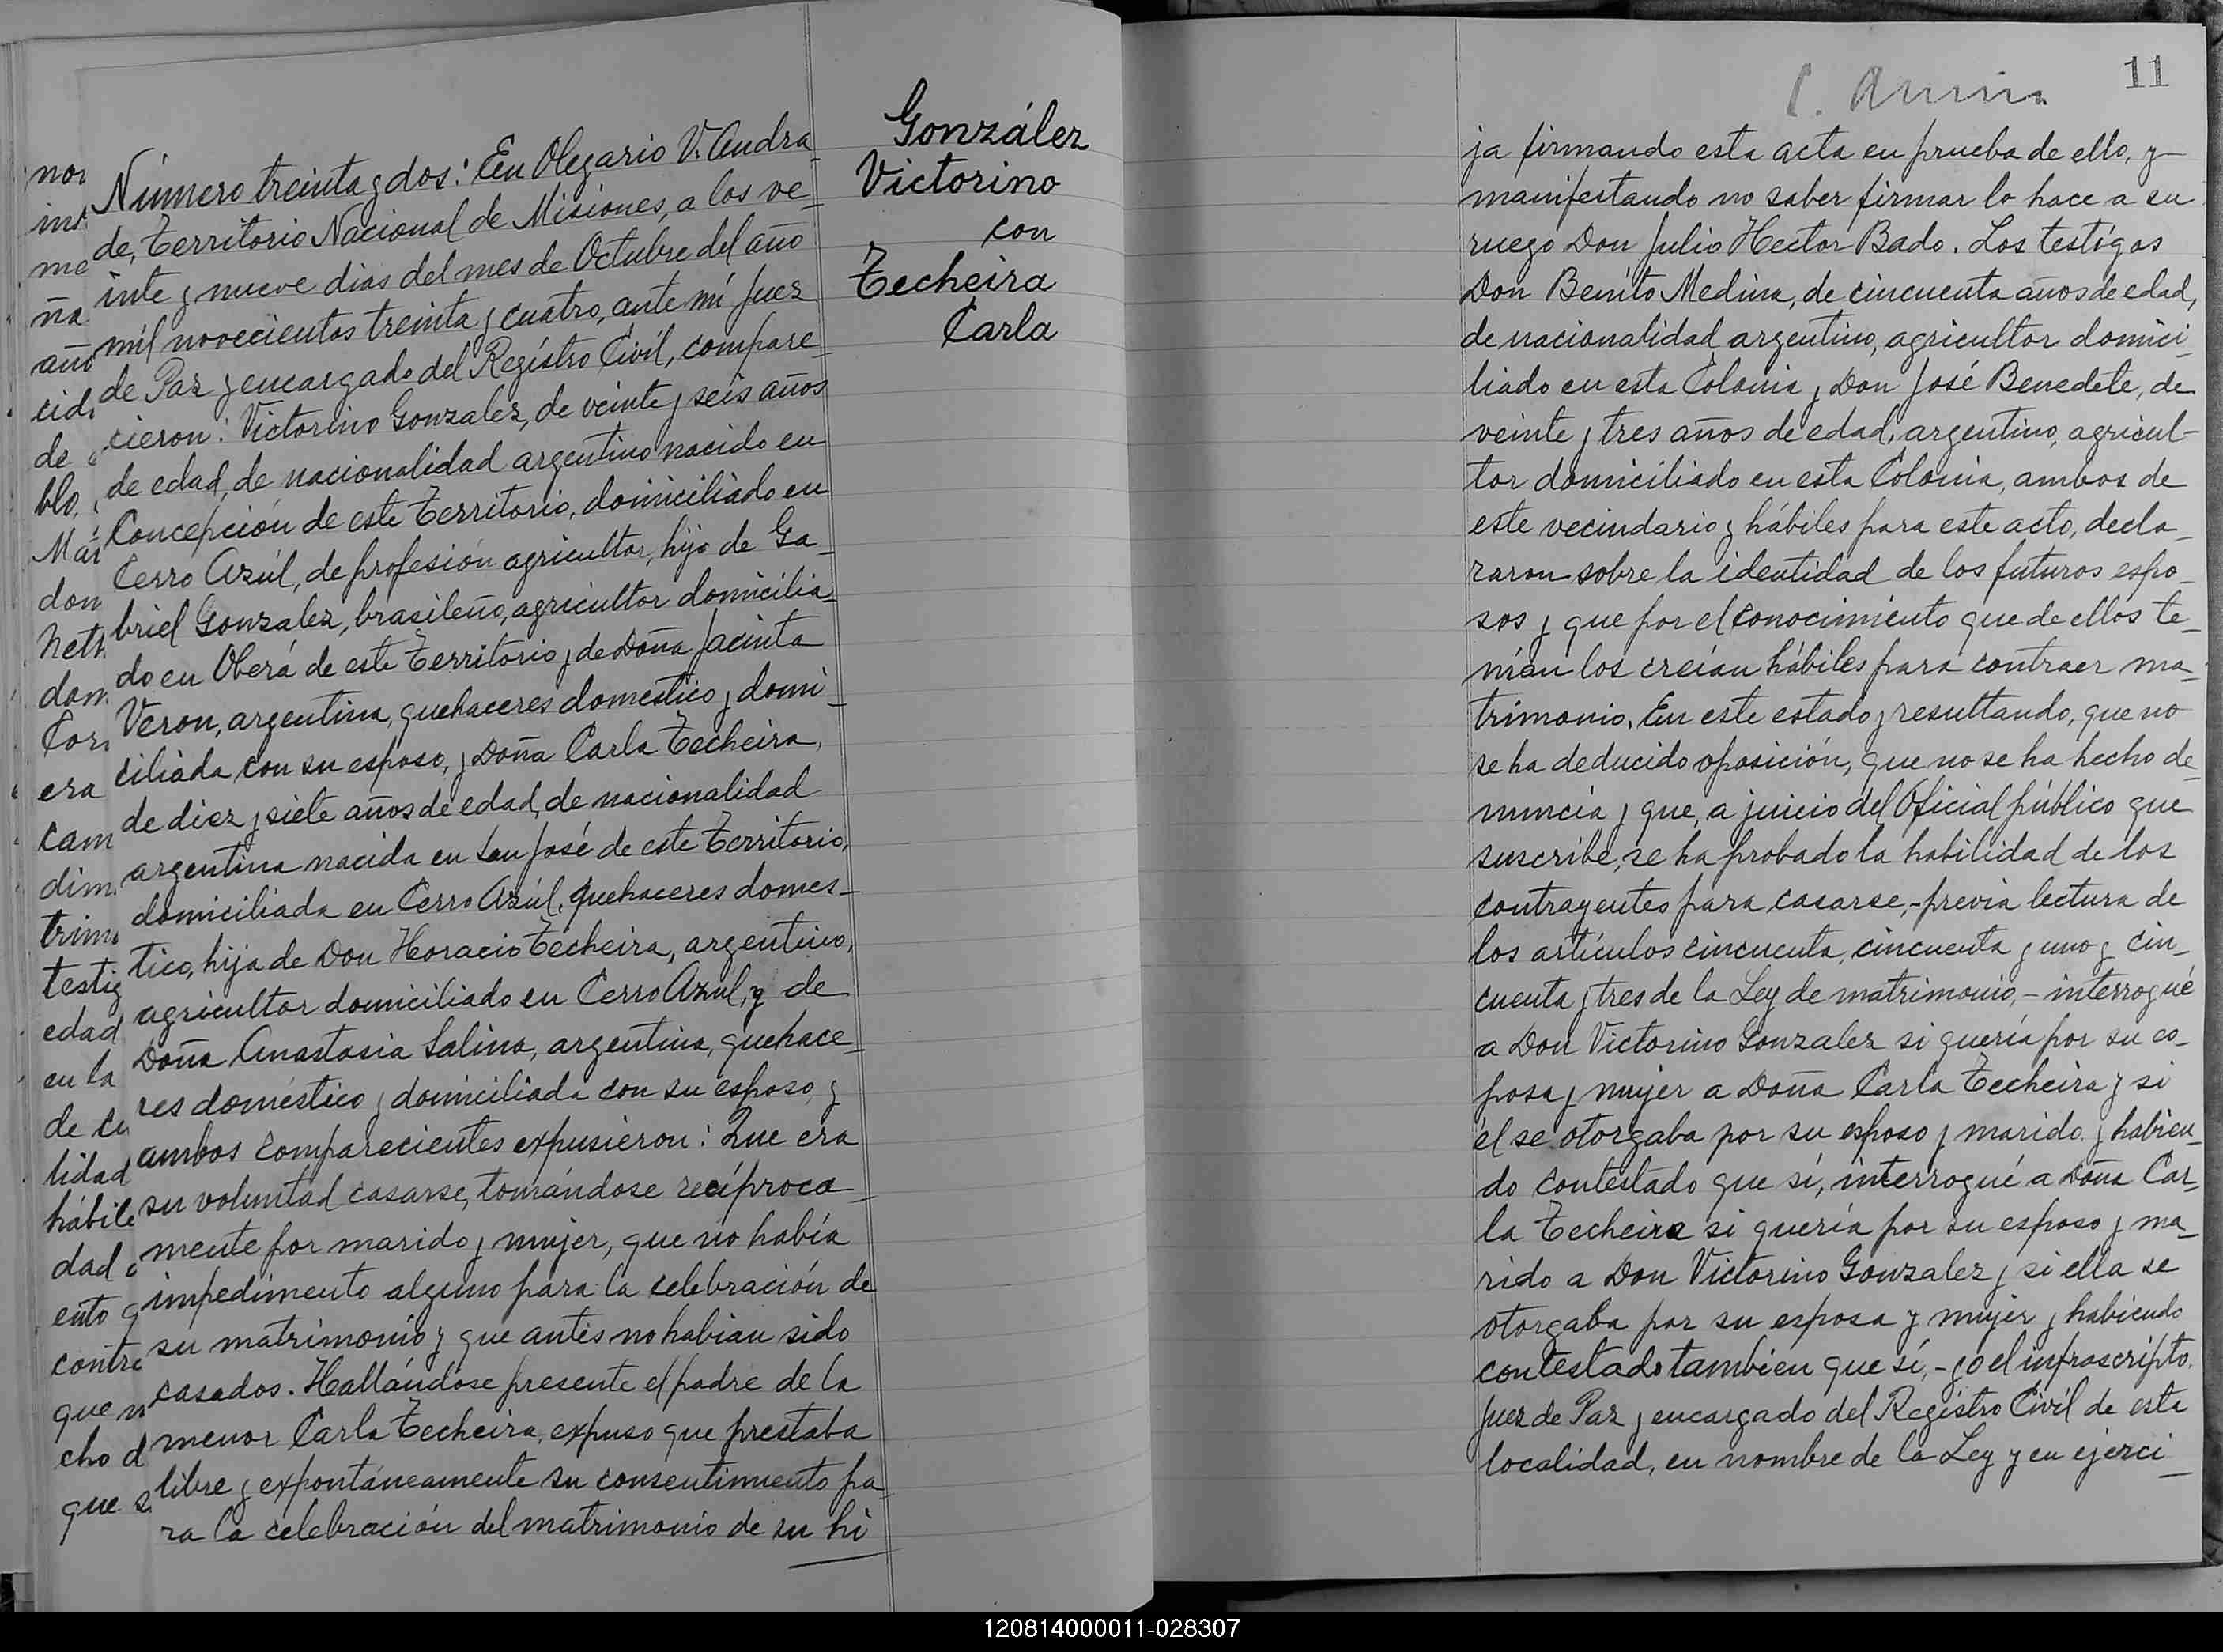 Número treinta y dos: En Olegario V. Andra-
de, Territorio Nacional de Misiones, a los ve-
inte y nueve dias del mes de Octubre del año
mil novecientos treinta y cuatro, ante mí Juez
de Paz y encargado del Registro Civil, compare-
cieron: Victorino Gonzalez, de veinte y seis años
de edad, de nacionalidad argentino nacido en
Concepción de este Territorio, domiciliado en
Cerro Azúl, de profesión agricultor, hijo de Ga-
briel Gonzalez, brasileño, agricultor domicilia-
do en Oberá de este Territorio y de Doña Jacinta
Veron, argentina, quehaceres domestico y domi-
ciliada con su esposo, y Doña Carla Techeira,
de diez y siete años de edad, de nacionalidad
argentina nacida en San José de este Territorio,
domiciliada en Cerro Azúl, quehaceres domes-
tico, hija de Don Horacio Techeira, argentino,
agricultor domiciliado en Cerro Azul, y de
Doña Anastasia Salina, argentina, quehace-
res doméstico y domiciliada con su esposo, y
ambos comparecientes expusieron: Que era
su voluntad casarse, tomándose recíproca-
mente por marido y mujer, que no había
impedimento alguno para la celebración de
su matrimonio y que antes no habian sido
casados. Hallándose presente el padre de la
menor Carla Techeira, expuso que prestaba
libre y expontáneamente su consentimiento pa-
ra la celebración del matrimonio de su hi
González
Victorino
con
Techeira
Carla
11
ja firmando esta acta en prueba de ello, y
manifestando no saber firmar lo hace a su
ruego Don Julio Hector Bado. Los testigos
Don Benito Medina, de cincuenta años de edad,
de nacionalidad argentino, agricultor domici-
liado en esta Colonia y Don José Benedete, de
veinte y tres años de edad, argentino, agricul-
tor domiciliado en esta Colonia, ambos de
este vecindario y hábiles para este acto, decla-
raron sobre la identidad de los futuros espo-
sos y que por el conocimiento que de ellos te-
nían los creían hábiles para contraer ma-
trimonio. En este estado y resultando, que no
se ha deducido oposición, que no se ha hecho de-
nuncia y que, a juicio del Oficial público que
suscribe, se ha probado la habilidad de los
contrayentes para casarse,- previa lectura de
los artículos cincuenta, cincuenta y uno y cin-
cuenta y tres de la Ley de matrimonio,- interrogué
a Don Victorino Gonzalez si quería por su es-
posa y mujer a Doña Carla Techeira y si
él se otorgaba por su esposo y marido y habien-
do contestado que sí, interrogué a Doña Car-
la Techeira si quería por su esposo y ma-
rido a Don Victorino Gonzalez y si ella se
otorgaba por su esposa y mujer y habiendo
contestado también que sí,- yo el infrascripto
Juez de Paz y encargado del Registro Civil de esta
localidad, en nombre de la Ley y en ejerci-
120814000011-028307